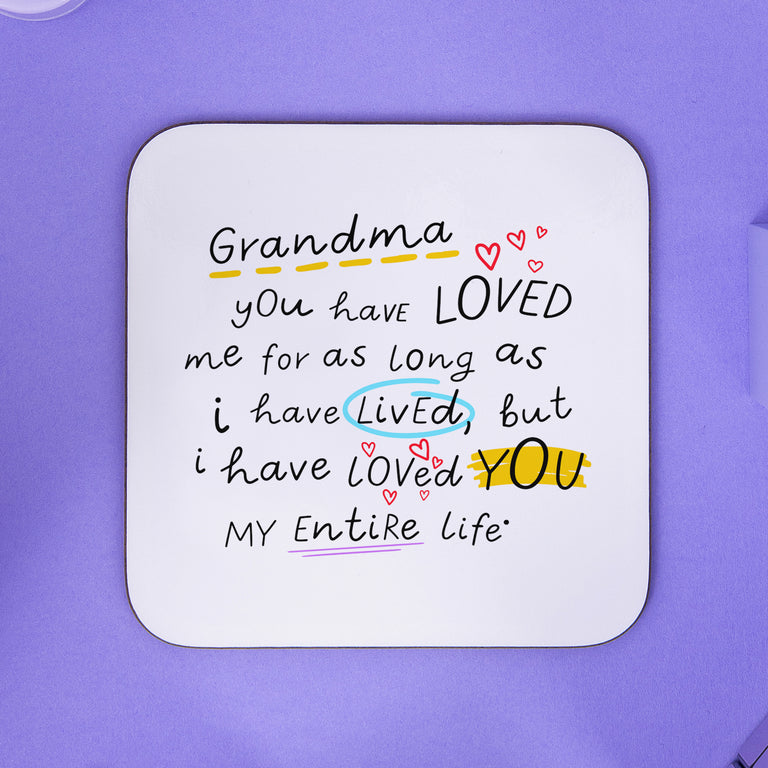 Grandma
yOu have LOVED
me for as long as
i have LivEd, but
i have lOVed YOU
MY EntiRe life.